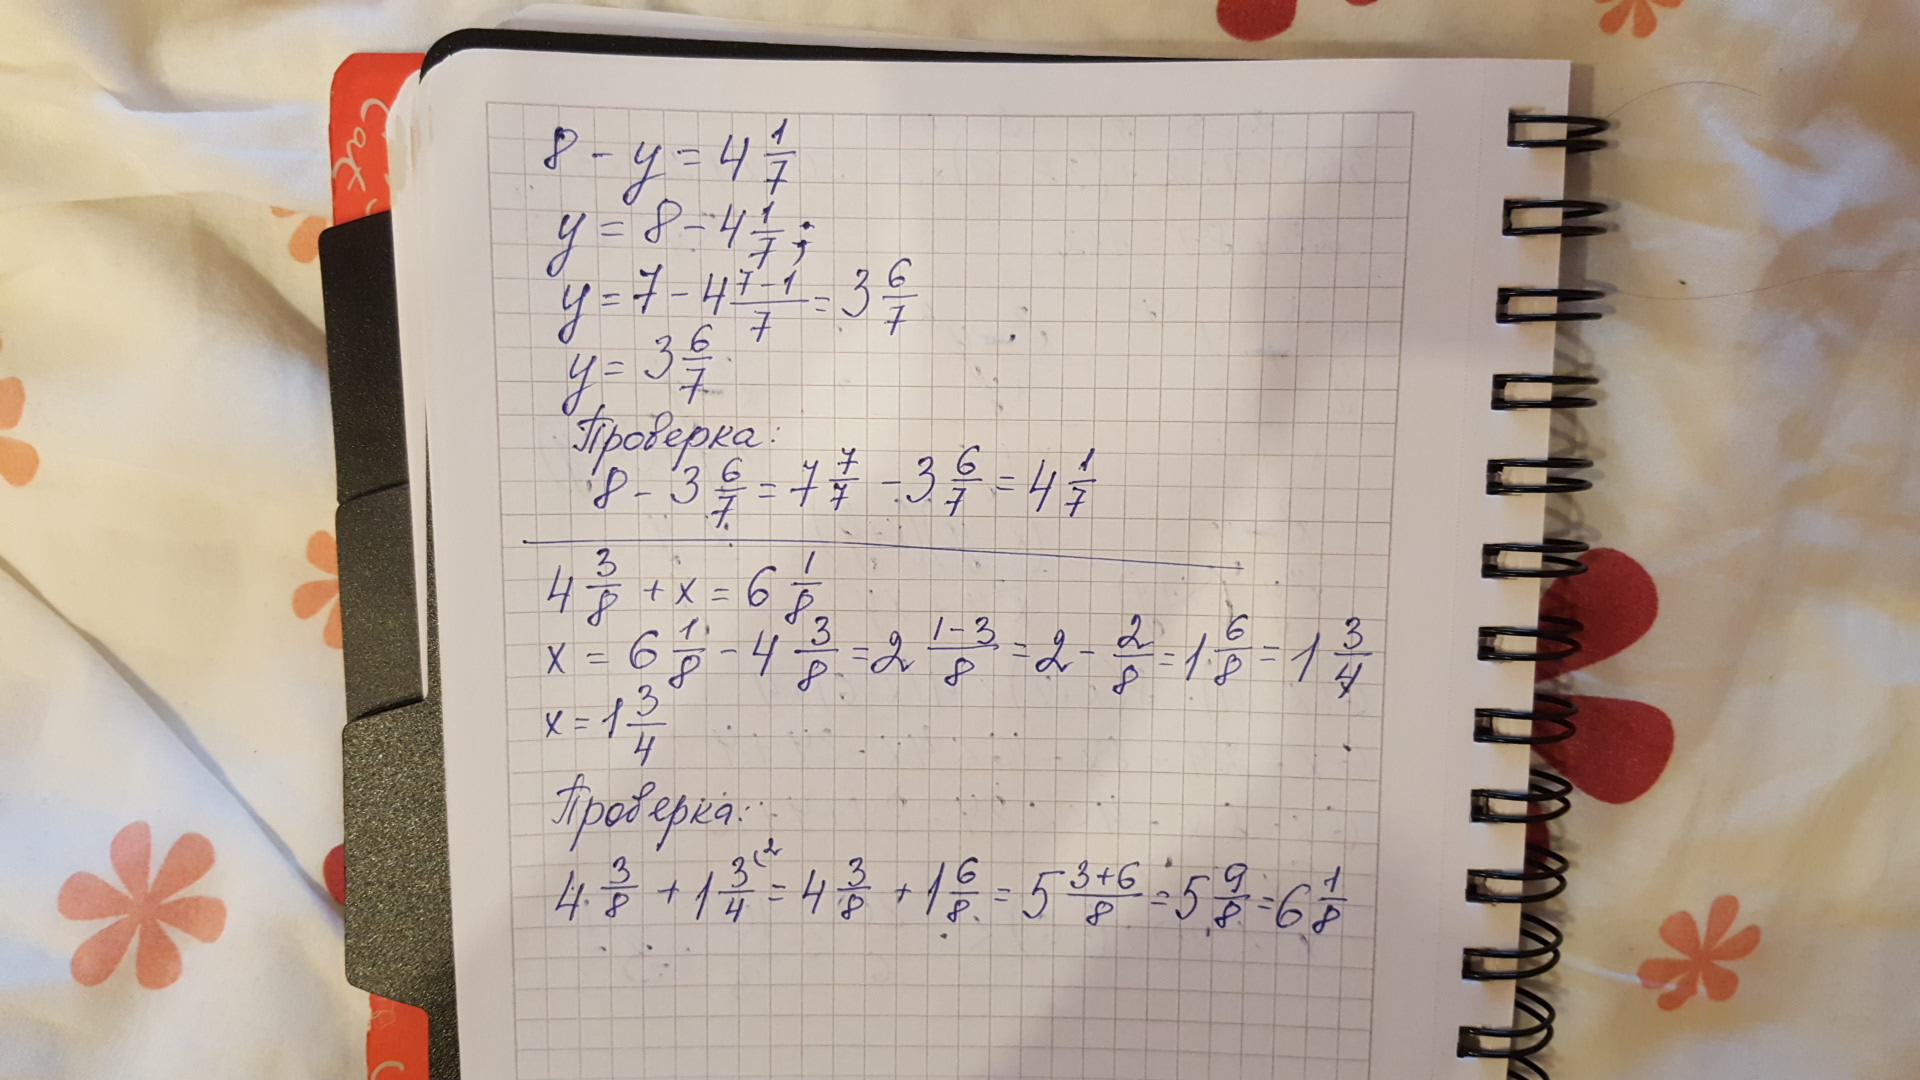 Cat
8 - y = 4 1/7
y = 8 - 4 1/7;
y = 7 - 4 (7-1)/7 = 3 6/7
y = 3 6/7
Проверка:
8 - 3 6/7 = 7 7/7 - 3 6/7 = 4 1/7
4 3/8 + x = 6 1/8
x = 6 1/8 - 4 3/8 = 2 (1-3)/8 = 2 - 2/8 = 1 6/8 = 1 3/4
x = 1 3/4
Проверка:
4 3/8 + 1 3/4 (2 = 4 3/8 + 1 6/8 = 5 (3+6)/8 = 5 9/8 = 6 1/8